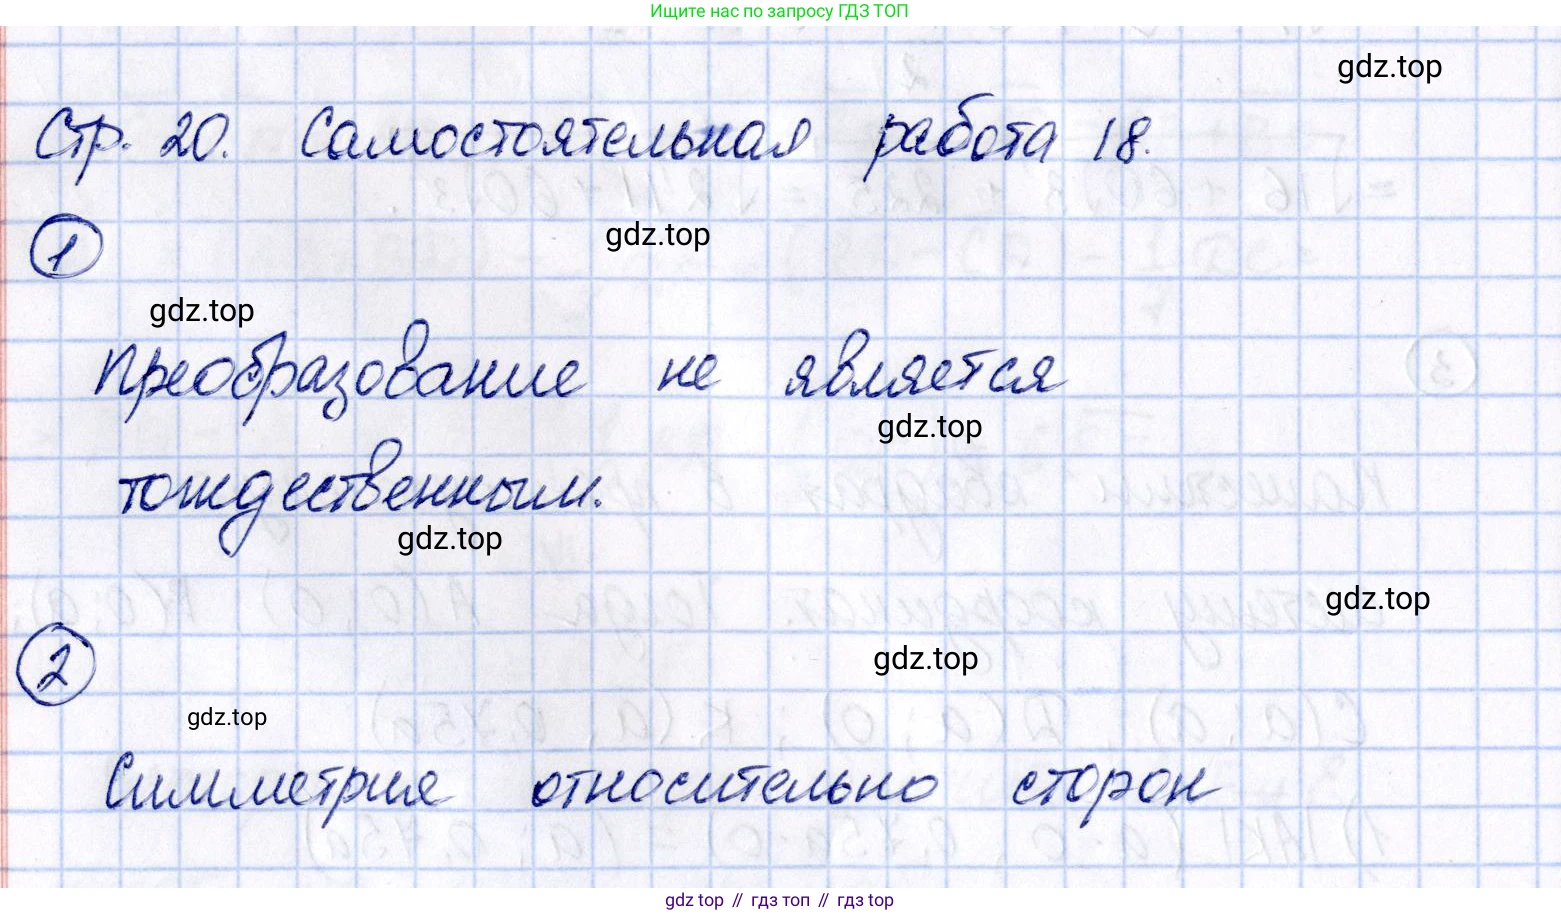 Ищите нас по запросу ГДЗ ТОП
gdz.top
Стр. 20. Самостоятельная работа 18.
1
gdz.top
gdz.top
Преобразование не является
gdz.top
тождественным.
gdz.top
gdz.top
2
gdz.top
gdz.top
Симметрия относительно сторон
gdz.top // гдз топ // гдз топ